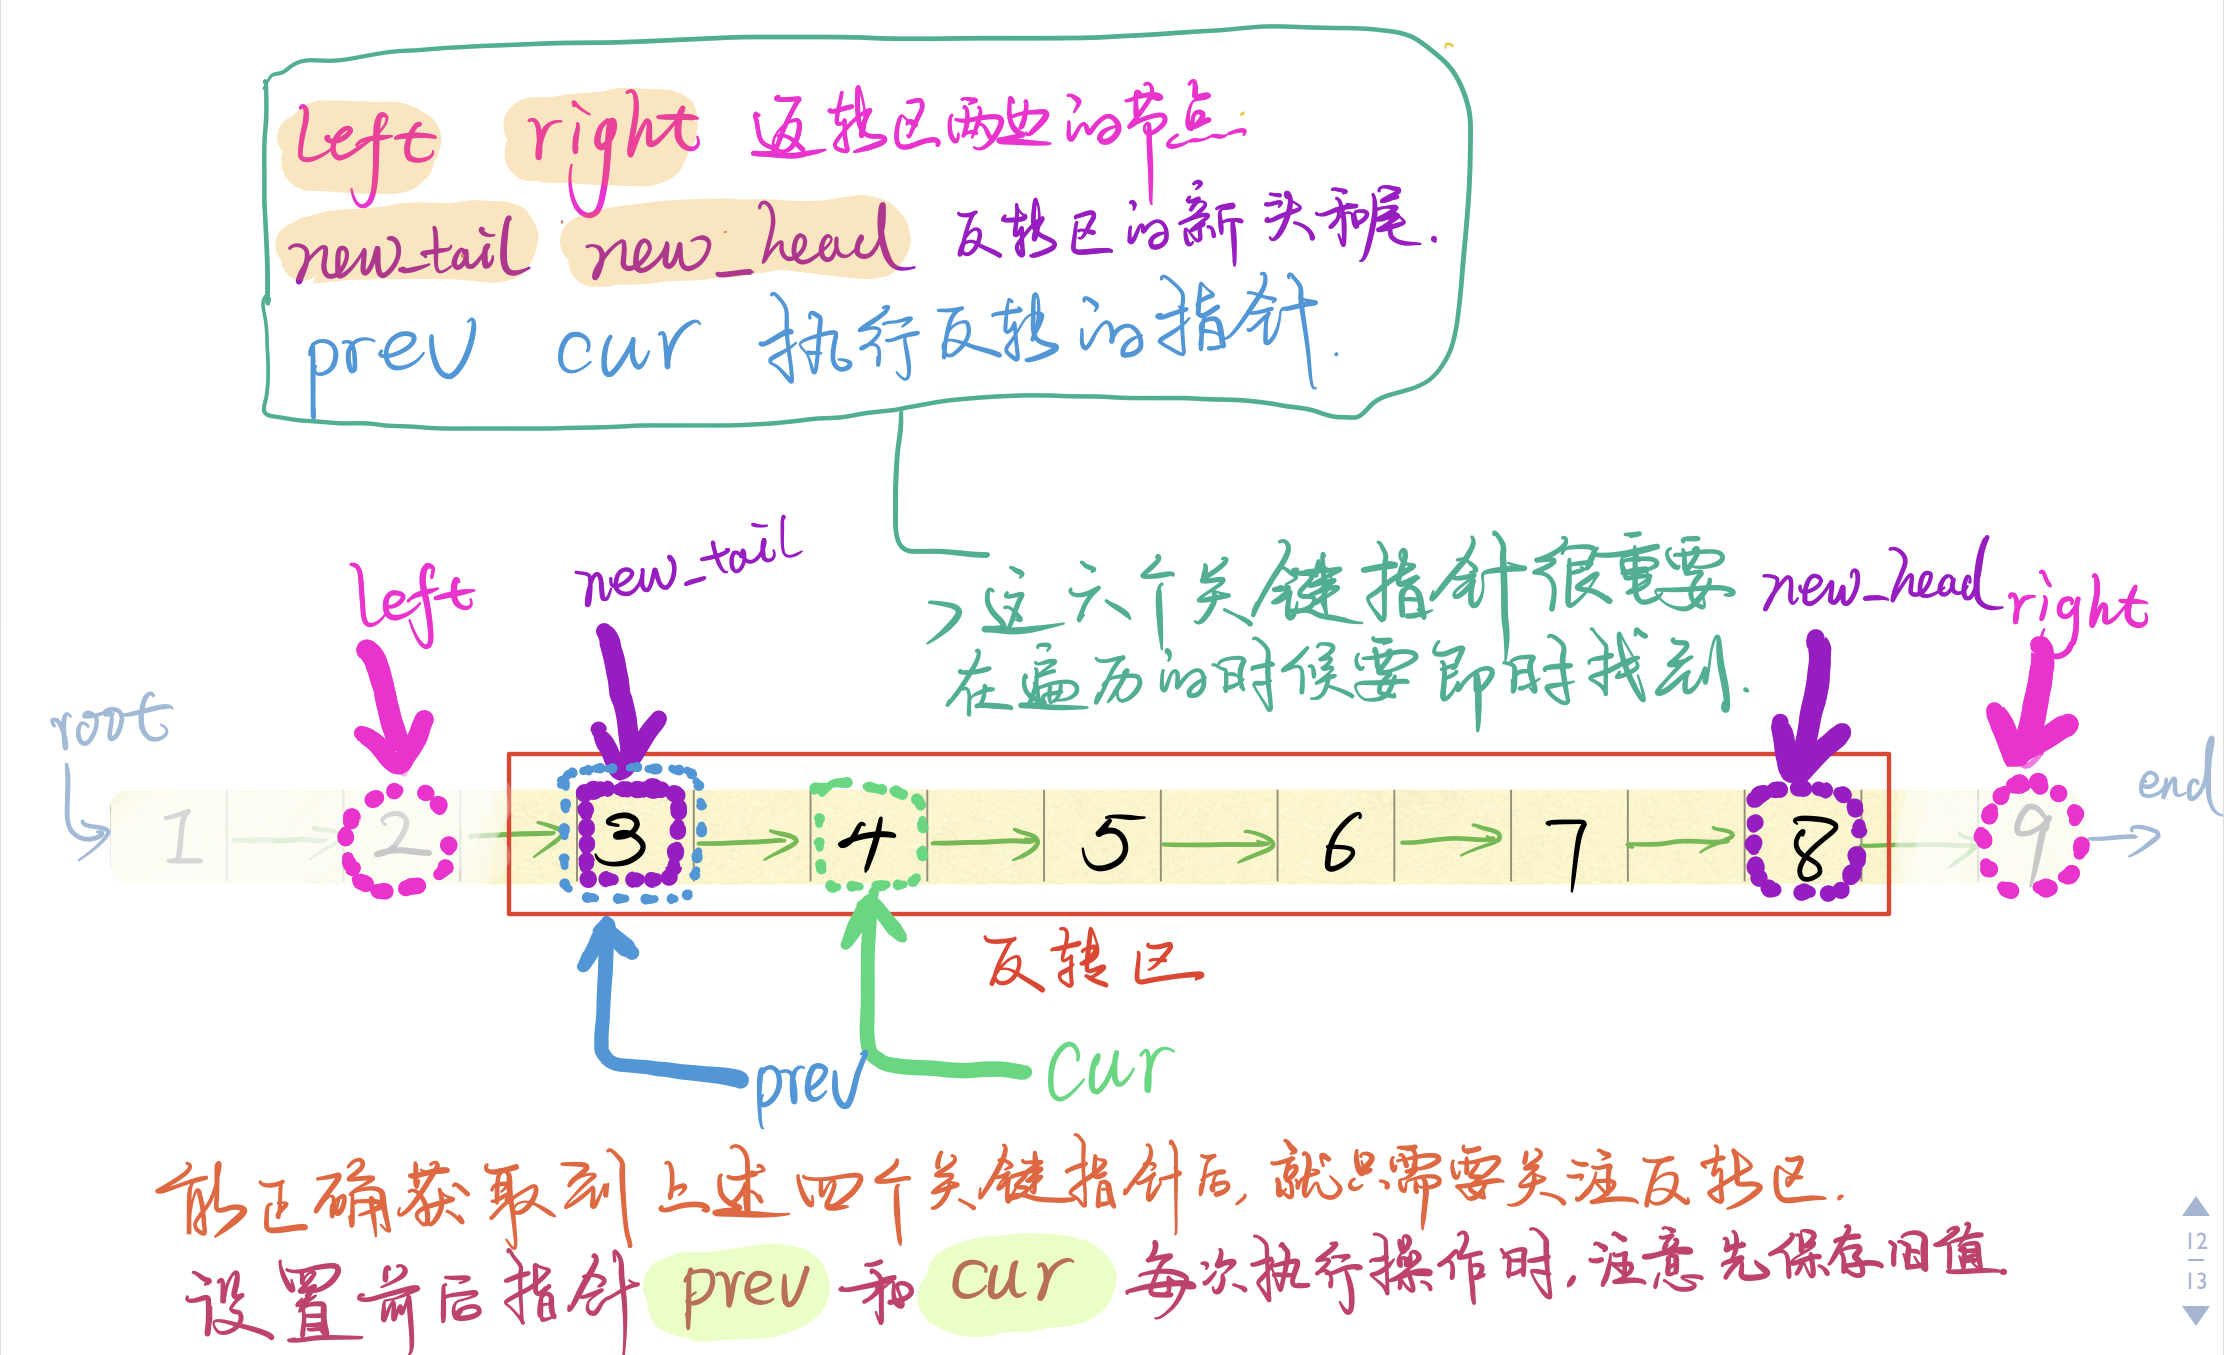 left right 返转区两边的节点.
new_tail new_head 反转区的新头和尾.
prev cur 执行反转的指针.
>这六个关键指针很重要
在遍历的时候要即时找到.
left
new_tail
new_head
right
root
end
1 2 3 4 5 6 7 8 9
反转区
prev
cur
能正确获取到上述四个关键指针后,就只需要关注反转区.
设置前后指针 prev 和 cur 每次执行操作时,注意先保存旧值
12
13